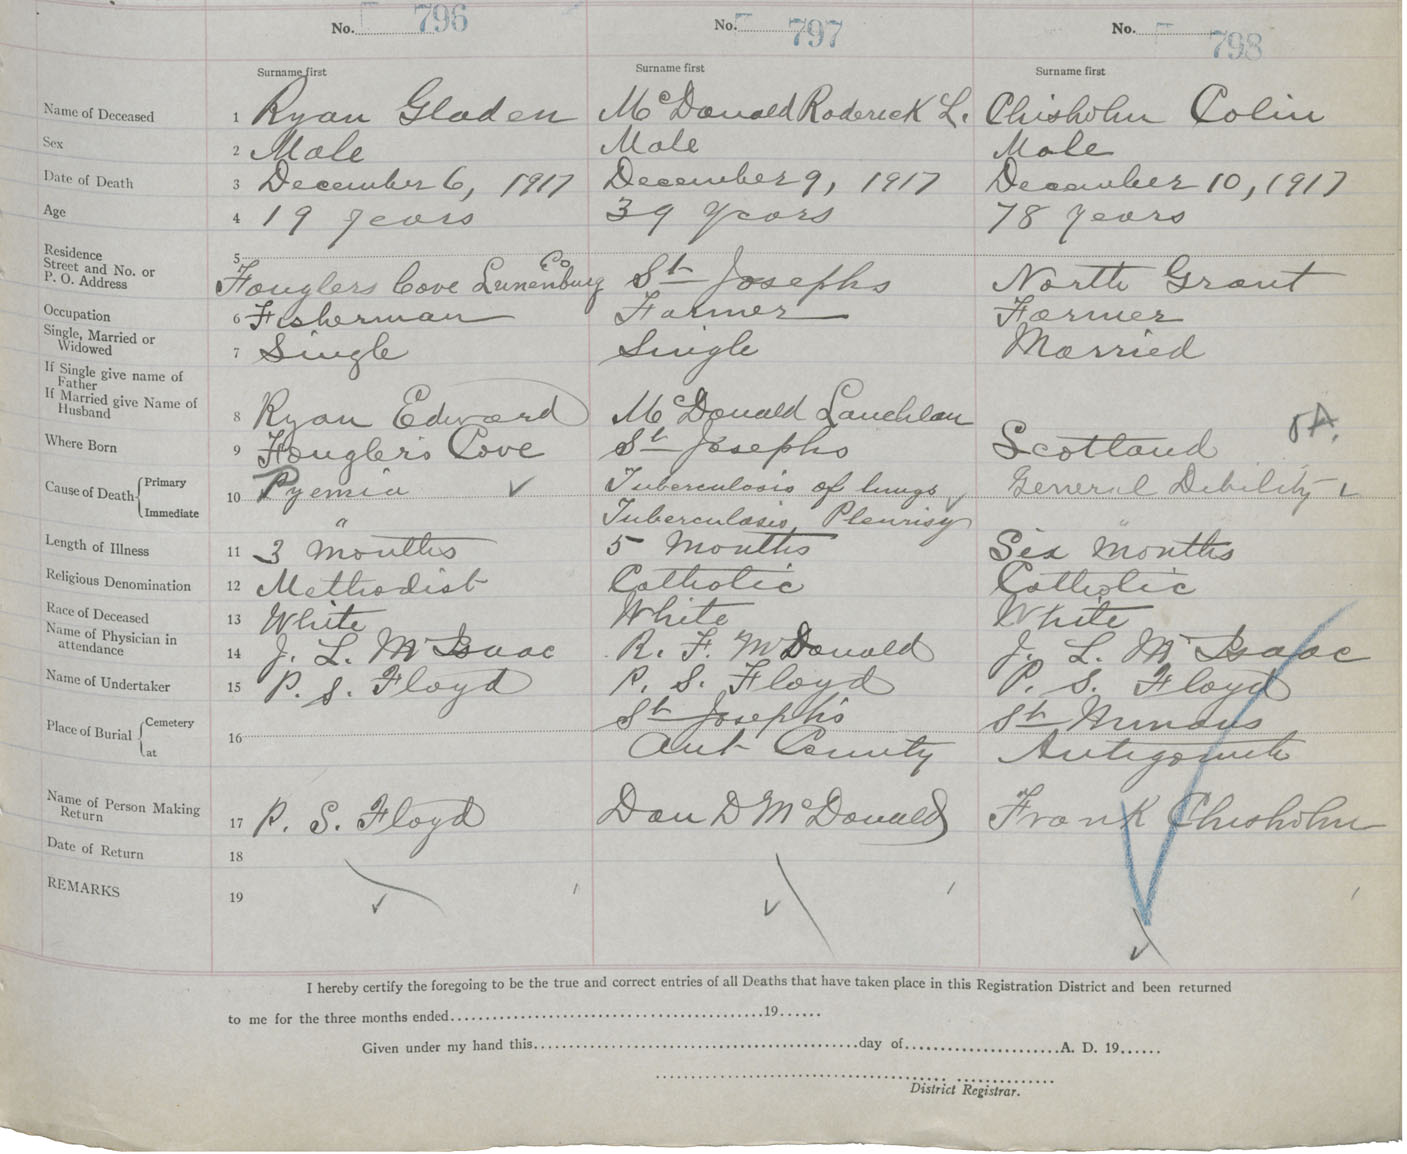 No. 796 No. 797 No. 798
Surname first Surname first Surname first
Name of Deceased 1 Ryan Gladen McDonald Roderick L. Chisholm Colin
Sex 2 Male Male Male
Date of Death 3 December 6, 1917 December 9, 1917 December 10, 1917
Age 4 19 years 39 years 78 years
Residence
Street and No. or
P. O. Address 5 Fouglers Cove Lunenburg Co St Josephs North Grant
Occupation 6 Fisherman Farmer Farmer
Single, Married or
Widowed 7 Single Single Married
If Single give name of
Father
If Married give Name of
Husband 8 Ryan Edward McDonald Lauchlan
Where Born 9 Fougler's Cove St Josephs Scotland
Cause of Death Primary 10 Pyemia Tuberculosis of lungs General Dibility
Immediate " Tuberculosis, Pleurisy "
Length of Illness 11 3 months 5 Months Six months
Religious Denomination 12 Methodist Catholic Catholic
Race of Deceased 13 White White White
Name of Physician in
attendance 14 J. L. McIsaac R. F. McDonald J. L. McIsaac
Name of Undertaker 15 P. S. Floyd P. S. Floyd P. S. Floyd
Place of Burial Cemetery 16 St Joseph's St Ninians
at Ant County Antigonish
Name of Person Making
Return 17 P. S. Floyd Dan D McDonald Frank Chisholm
Date of Return 18
REMARKS 19
I hereby certify the foregoing to be the true and correct entries of all Deaths that have taken place in this Registration District and been returned
to me for the three months ended 19
Given under my hand this day of A. D. 19
District Registrar.